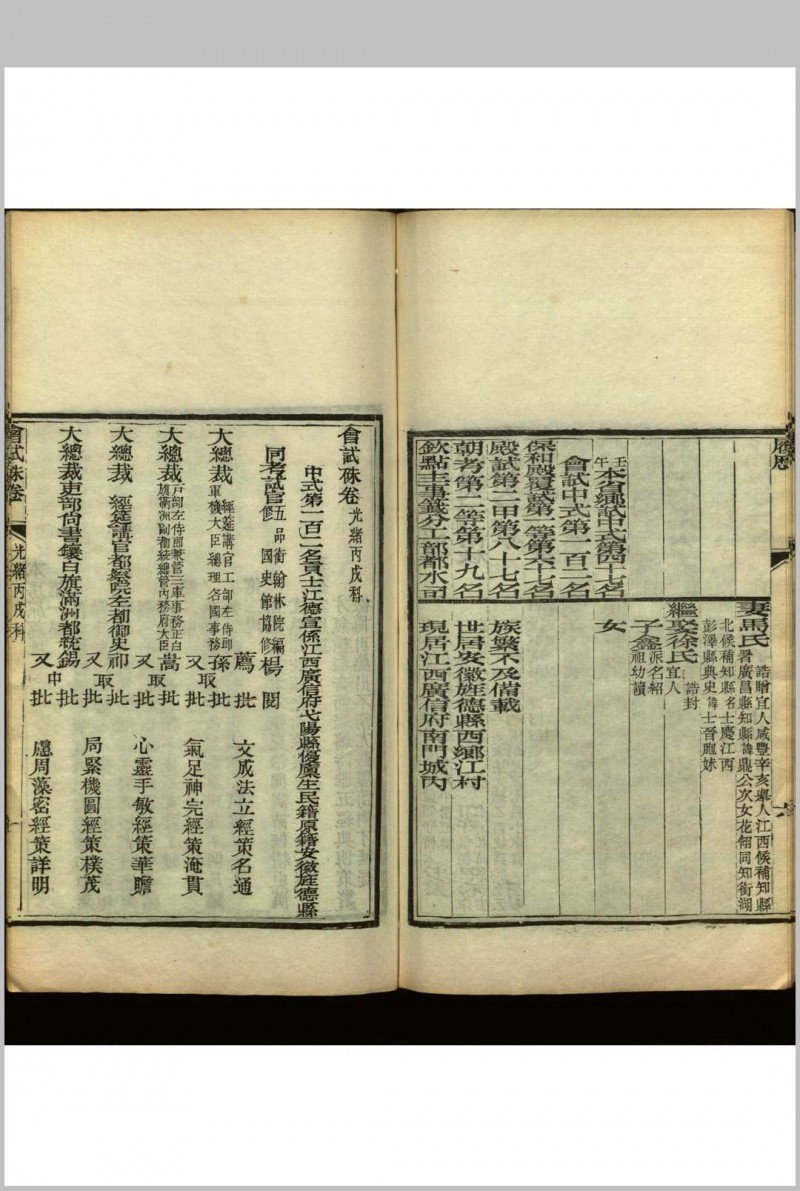 履歷
妻馬氏
誥贈宜人咸豐辛亥舉人江西候補知縣
署廣昌縣知縣諱鼎公次女花翎同知銜湖
北候補知縣名士慶江西
彭澤縣典史諱士晉胞妹
繼娶徐氏
誥封
宜人
子鑫
派名紹
祖幼讀
女
族繁不及備載
世居安徽旌德縣西鄉江村
現居江西廣信府南門城內
六
壬午本省鄉試中式第四十七名
會試中式第一百二名
保和殿覆試第一等第六十七名
殿試第二甲第八十七名
朝考第二等第十九名
欽點主事籤分工部都水司
會試硃卷 光緒丙戌科
中式第一百二名貢士江德宣係江西廣信府弋陽縣優廩生民籍原籍安徽旌德縣
同考試官
五品銜翰林院編
修國史館協修
楊 閱
薦 批 文成法立經策名通
大總裁
經筵講官工部左侍郎
軍機大臣總理各國事務
孫
又取 批 氣足神完經策淹貫
大總裁
戶部左侍郎兼管三庫事務正白
旗滿洲副都統總管內務府大臣
嵩
又取 批 心靈手敏經策華贍
大總裁 經筵講官都察院左都御史 祁
又取 批 局緊機圓經策樸茂
大總裁吏部尚書鑲白旗滿洲都統錫
又中 批 慮周藻密經策詳明
會試硃卷
光緒丙戌科
一